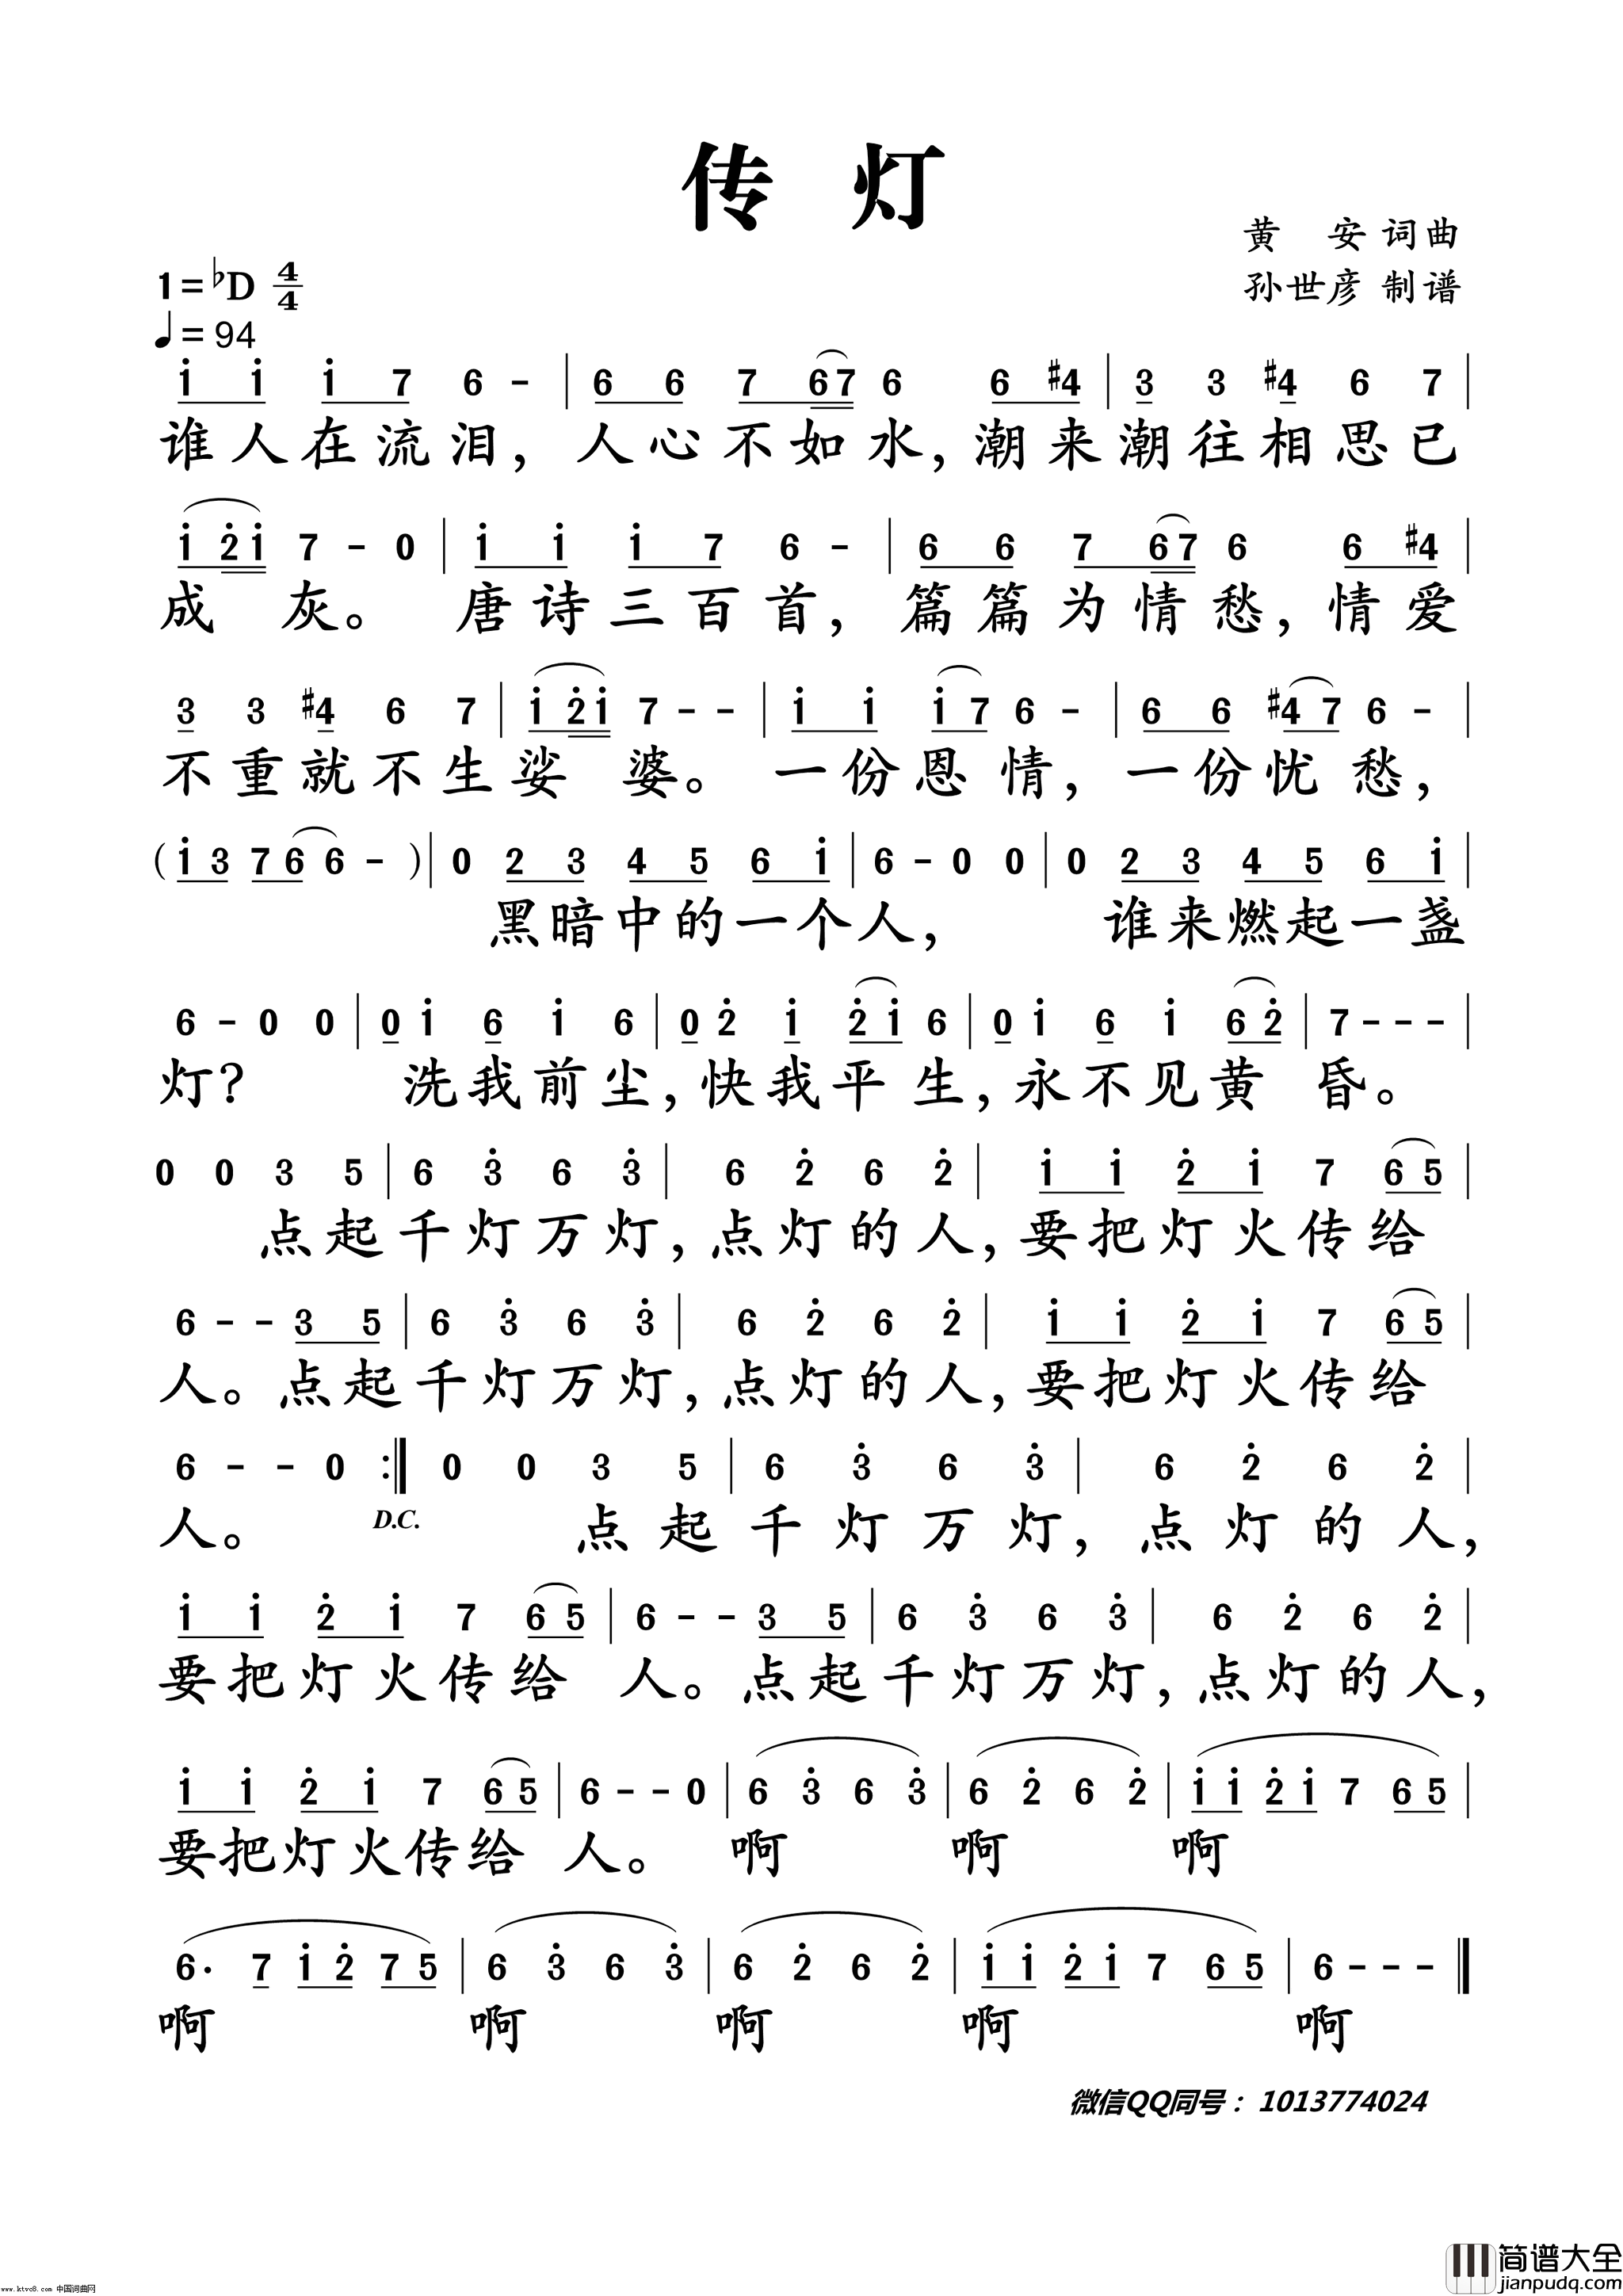 传 灯
黄 安 词曲
孙世彦 制谱
1=♭D 4/4
♩=94
i i i 7 6 - | 6 6 7 6 7 6 6 #4 | 3 3 #4 6 7 |
谁人在流泪，人心不如水，潮来潮往相思已
i 2̇ i 7 - 0 | i i i 7 6 - | 6 6 7 6 7 6 6 #4 |
成 灰。 唐诗三百首，篇篇为情愁，情爱
3 3 #4 6 7 | i 2̇ i 7 - - | i i i 7 6 - | 6 6 #4 7 6 - |
不重就不生娑 婆。一份恩情，一份忧愁，
( i 3 7 6 6 - ) | 0 2 3 4 5 6 i | 6 - 0 0 | 0 2 3 4 5 6 i |
黑暗中的一个人， 谁来燃起一盏
6 - 0 0 | 0 i 6 i 6 | 0 2̇ i 2̇ i 6 | 0 i 6 i 6 2̇ | 7 - - - |
灯？ 洗我前尘，快我平生，永不见黄 昏。
0 0 3 5 | 6 3̇ 6 3̇ | 6 2̇ 6 2̇ | i i 2̇ i 7 6 5 |
点起千灯万灯，点灯的人，要把灯火传给
6 - - 3 5 | 6 3̇ 6 3̇ | 6 2̇ 6 2̇ | i i 2̇ i 7 6 5 |
人。点起千灯万灯，点灯的人，要把灯火传给
6 - - 0 :‖ 0 0 3 5 | 6 3̇ 6 3̇ | 6 2̇ 6 2̇ |
人。 D.C. 点起千灯万灯，点灯的人，
i i 2̇ i 7 6 5 | 6 - - 3 5 | 6 3̇ 6 3̇ | 6 2̇ 6 2̇ |
要把灯火传给 人。点起千灯万灯，点灯的人，
i i 2̇ i 7 6 5 | 6 - - 0 | 6 3̇ 6 3̇ | 6 2̇ 6 2̇ | i i 2̇ i 7 6 5 |
要把灯火传给 人。 啊 啊 啊
6· 7 i 2̇ 7 5 | 6 3̇ 6 3̇ | 6 2̇ 6 2̇ | i i 2̇ i 7 6 5 | 6 - - - ‖
啊 啊 啊 啊 啊
微信QQ同号：1013774024
简谱大全
jianpudq.com
www.ktvc8.com 中国词曲网